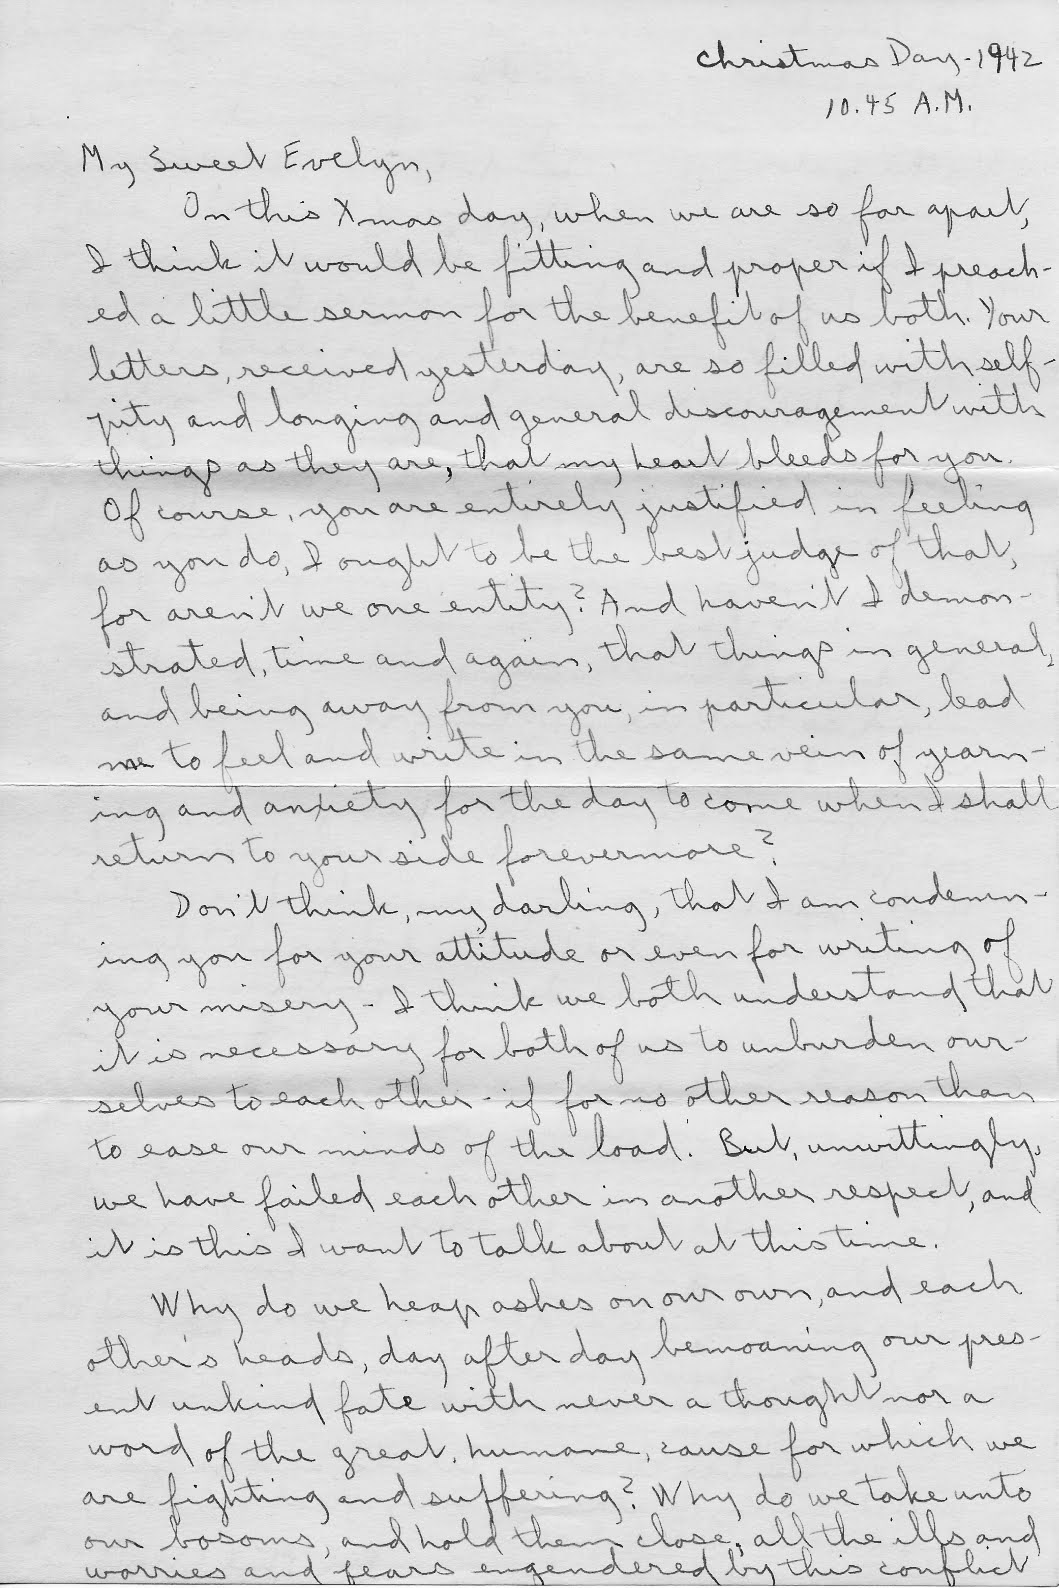 Christmas Day - 1942
10.45 A.M.
My Sweet Evelyn,
On this Xmas day, when we are so far apart,
I think it would be fitting and proper if I preach-
ed a little sermon for the benefit of us both. Your
letters, received yesterday, are so filled with self-
pity and longing and general discouragement with
things as they are, that my heart bleeds for you.
Of course, you are entirely justified in feeling
as you do, I ought to be the best judge of that,
for aren't we one entity? And haven't I demon-
strated, time and again, that things in general,
and being away from you, in particular, lead
me to feel and write in the same vein of yearn-
ing and anxiety for the day to come when I shall
return to your side forevermore?
Don't think, my darling, that I am condemn-
ing you for your attitude or even for writing of
your misery - I think we both understand that
it is necessary for both of us to unburden our-
selves to each other - if for no other reason than
to ease our minds of the load. But, unwittingly,
we have failed each other in another respect, and
it is this I want to talk about at this time.
Why do we heap ashes on our own, and each
other's heads, day after day bemoaning our pres-
ent unkind fate with never a thought nor a
word of the great, humane, cause for which we
are fighting and suffering? Why do we take unto
our bosoms, and hold them close, all the ills and
worries and fears engendered by this conflict